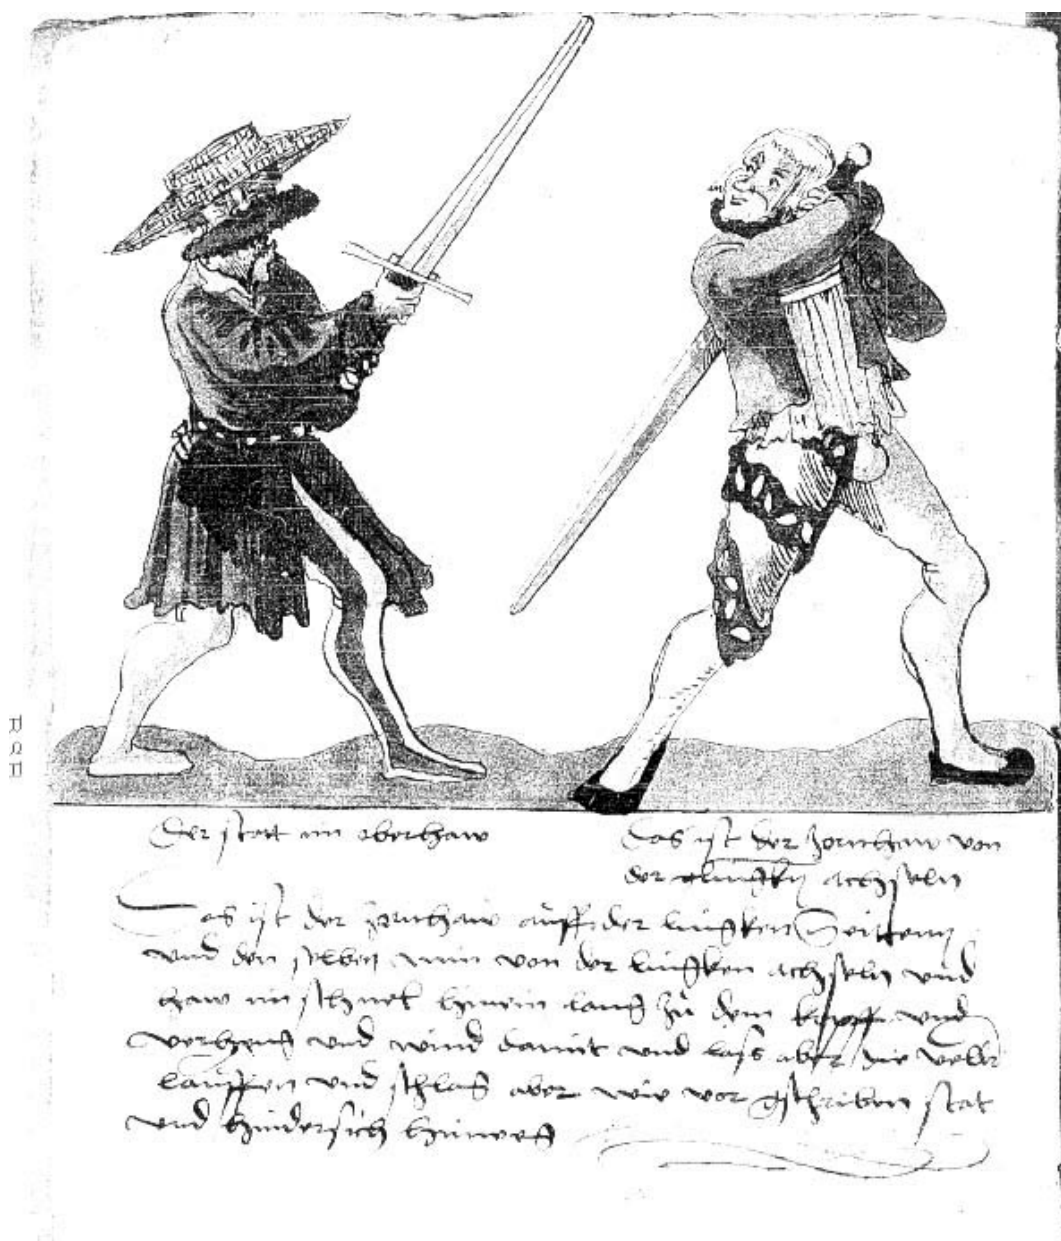 Der statt im oberhaw
Das ist der zornhaw von
der lingken achseln
Das ist der zornhaw auff der lingken Seitten
und den selben nim von der lingken achseln und
haw im schnel hinein lang zů dem kopff und
verheng und wind damit und lass aber die
lauffen und schlag aber wie vor gschriben stat
und hindersich hinweg